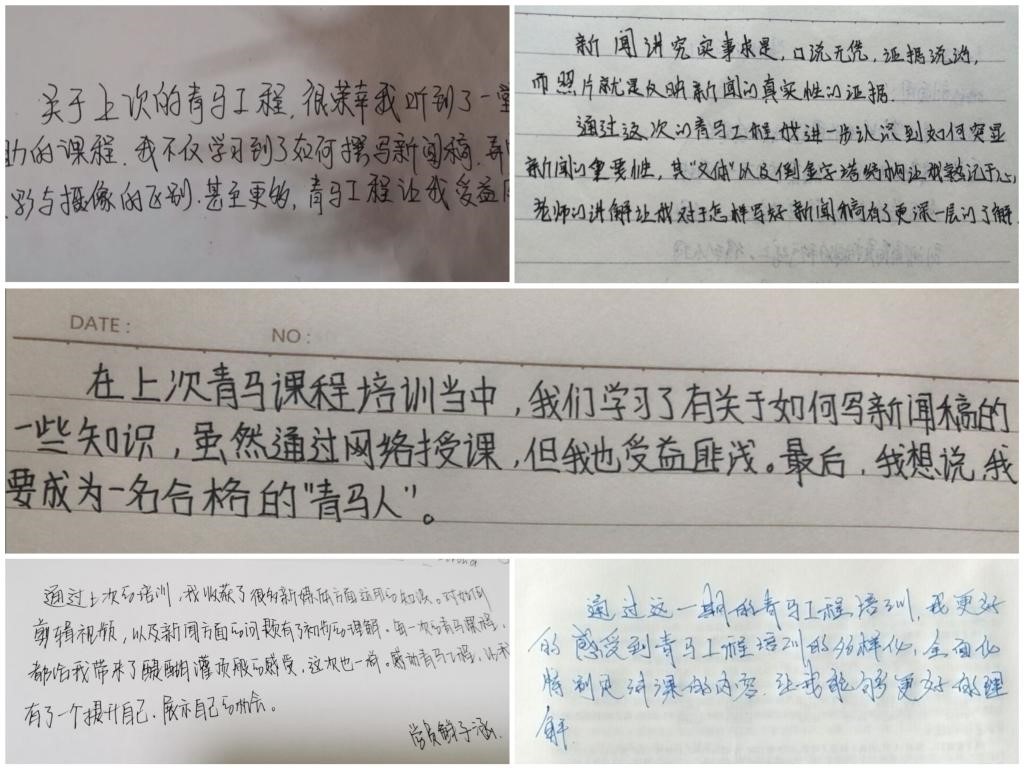 关于上次的青马工程,很荣幸我听到了一堂
助的课程.我不仅学习到了如何撰写新闻稿,
影与摄像的区别.甚至更够,青马工程让我受益
新闻讲究实事求是,口说无凭,证据说话,
而照片就是反映新闻的真实性的证据.
通过这次的青马工程我进一步认识到如何突显
新闻的重要性,其"文体"以及倒金字塔结构让我熟记于心,
老师的讲解让我对于怎样写好新闻稿有了更深一层的了解.
DATE:
NO:
在上次青马课程培训当中,我们学习了有关于如何写新闻稿的
一些知识,虽然通过网络授课,但我也受益匪浅。最后,我想说,我
要成为一名合格的"青马人"。
通过上次的培训,我收获了很多新媒体方面运用的知识。对如何
剪辑视频,以及新闻方面的问题有了初步的理解。每一次的青马课程,
都给我带来了醍醐灌顶般的感受,这次也一样。感动青马工程,让我
有了一个提升自己、展示自己的机会。
学员 子涵.
通过这一期的青马工程培训,我更好
的感受到青马工程培训的多样化,全面化
特别是讲课的内容.让我能够更好的理
解.